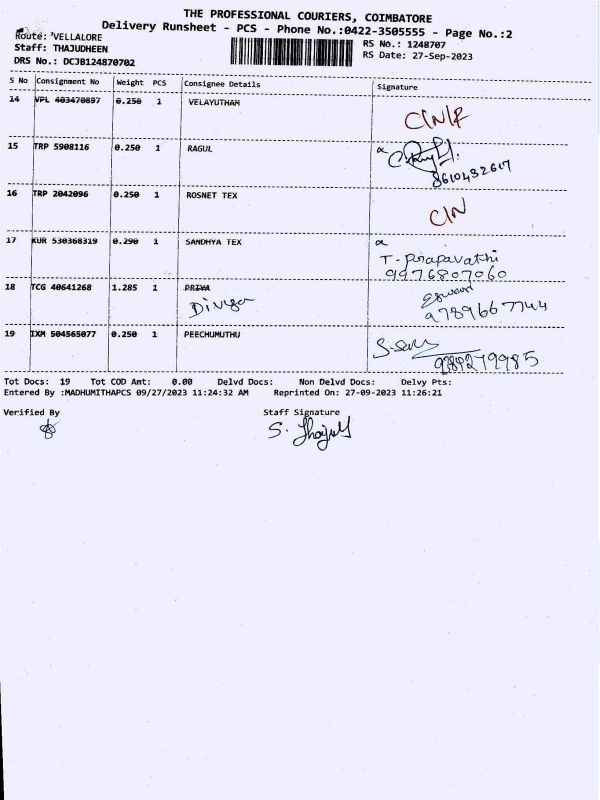 THE PROFESSIONAL COURIERS, COIMBATORE
Delivery Runsheet - PCS - Phone No.:0422-3505555 - Page No.:2
Route: VELLALORE
RS No.: 1248707
Staff: THAJUDHEEN
RS Date: 27-Sep-2023
DRS No.: DCJB124870702
S No Consignment No Weight PCS Consignee Details Signature
14 VPL 403470897 0.250 1 VELAYUTHAM C/N/R
15 TRP 5908116 0.250 1 RAGUL
8610432617
16 TRP 2042096 0.250 1 ROSNET TEX C/N
17 KUR 530368319 0.290 1 SANDHYA TEX
T. Pirapavathi
9976807060
18 TCG 40641268 1.285 1 PRIYA
Divya
9789667744
19 IXM 504565077 0.250 1 PEECHUMUTHU
Tot Docs: 19 Tot COD Amt: 0.00 Delvd Docs: Non Delvd Docs: Delvy Pts:
Entered By :MADHUMITHAPCS 09/27/2023 11:24:32 AM Reprinted On: 27-09-2023 11:26:21
Verified By Staff Signature